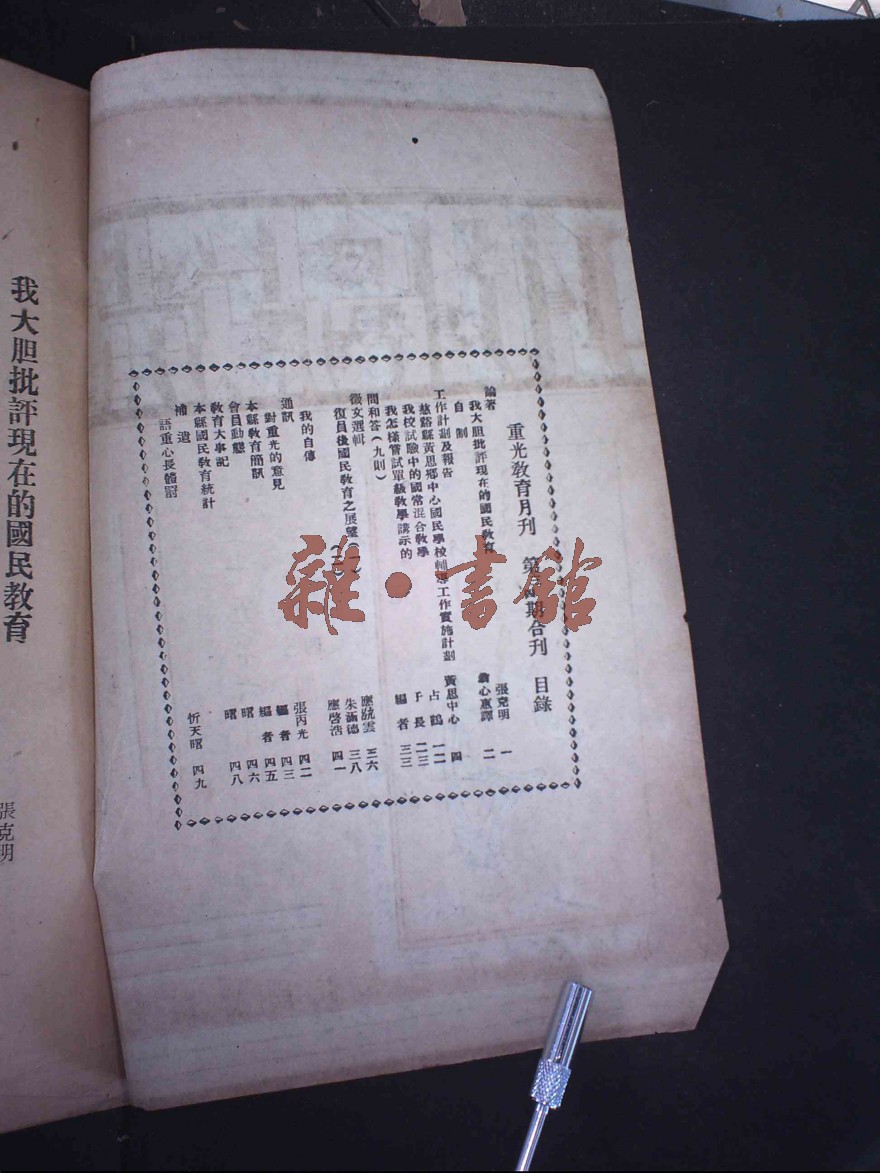 重光教育月刊 第 期合刊 目錄
論著
我大胆批評現在的國民教育 張克明 一
自制 心惠譯 二
工作計划及報告
慈谿縣黃思鄉中心國民學校輔導工作實施計劃 黃思中心 四
我校試驗中的國常混合教學 占鶴 一二
我怎樣嘗試單級教學講示的 子長 二三
問和答(九則) 編者 三三
徵文選輯
復員後國民教育之展望(一) 應 雲 三六
(二) 朱滿德 三八
應啓浩 四一
我的自傳 張丙光 四二
通訊
對重光的意見 編者 四三
會員動態 編者 四五
本縣教育簡訊 曙 四六
教育大事記 曙 四八
本縣國民教育統計
補遺
語重心長體罰 忻天曙 四九
雜·書館
我大胆批評現在的國民教育
張克明